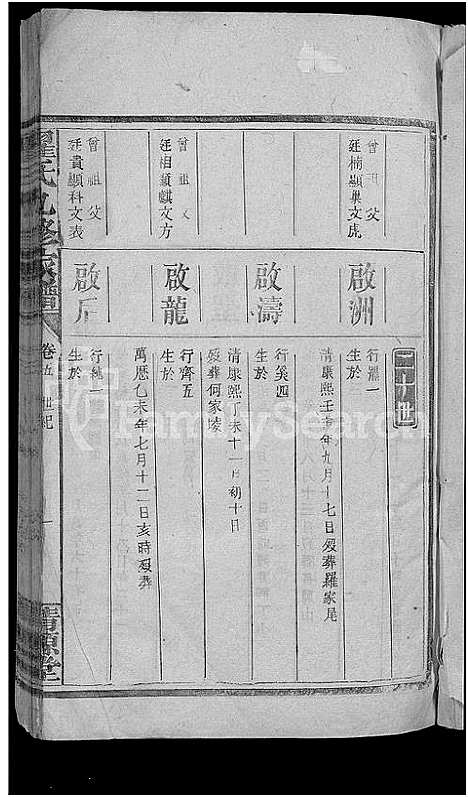 二十世
曾祖父
廷楠顯巢文虎
啟洲
行羆一
生於
清康熙壬子年九月十七日歿葬羅家尾
啟濤
行奚四
生於
清康熙丁未十一月初十日
歿葬何家陵
曾祖父
廷相顯麒文方
啟龍
行齊五
生於
萬歷乙未年七月十二日亥時歿葬
曾祖父
廷貴顯科文表
啟后
行純一
生於
瞿氏九修家譜
卷五 世紀
一
清源堂
FamilySearch